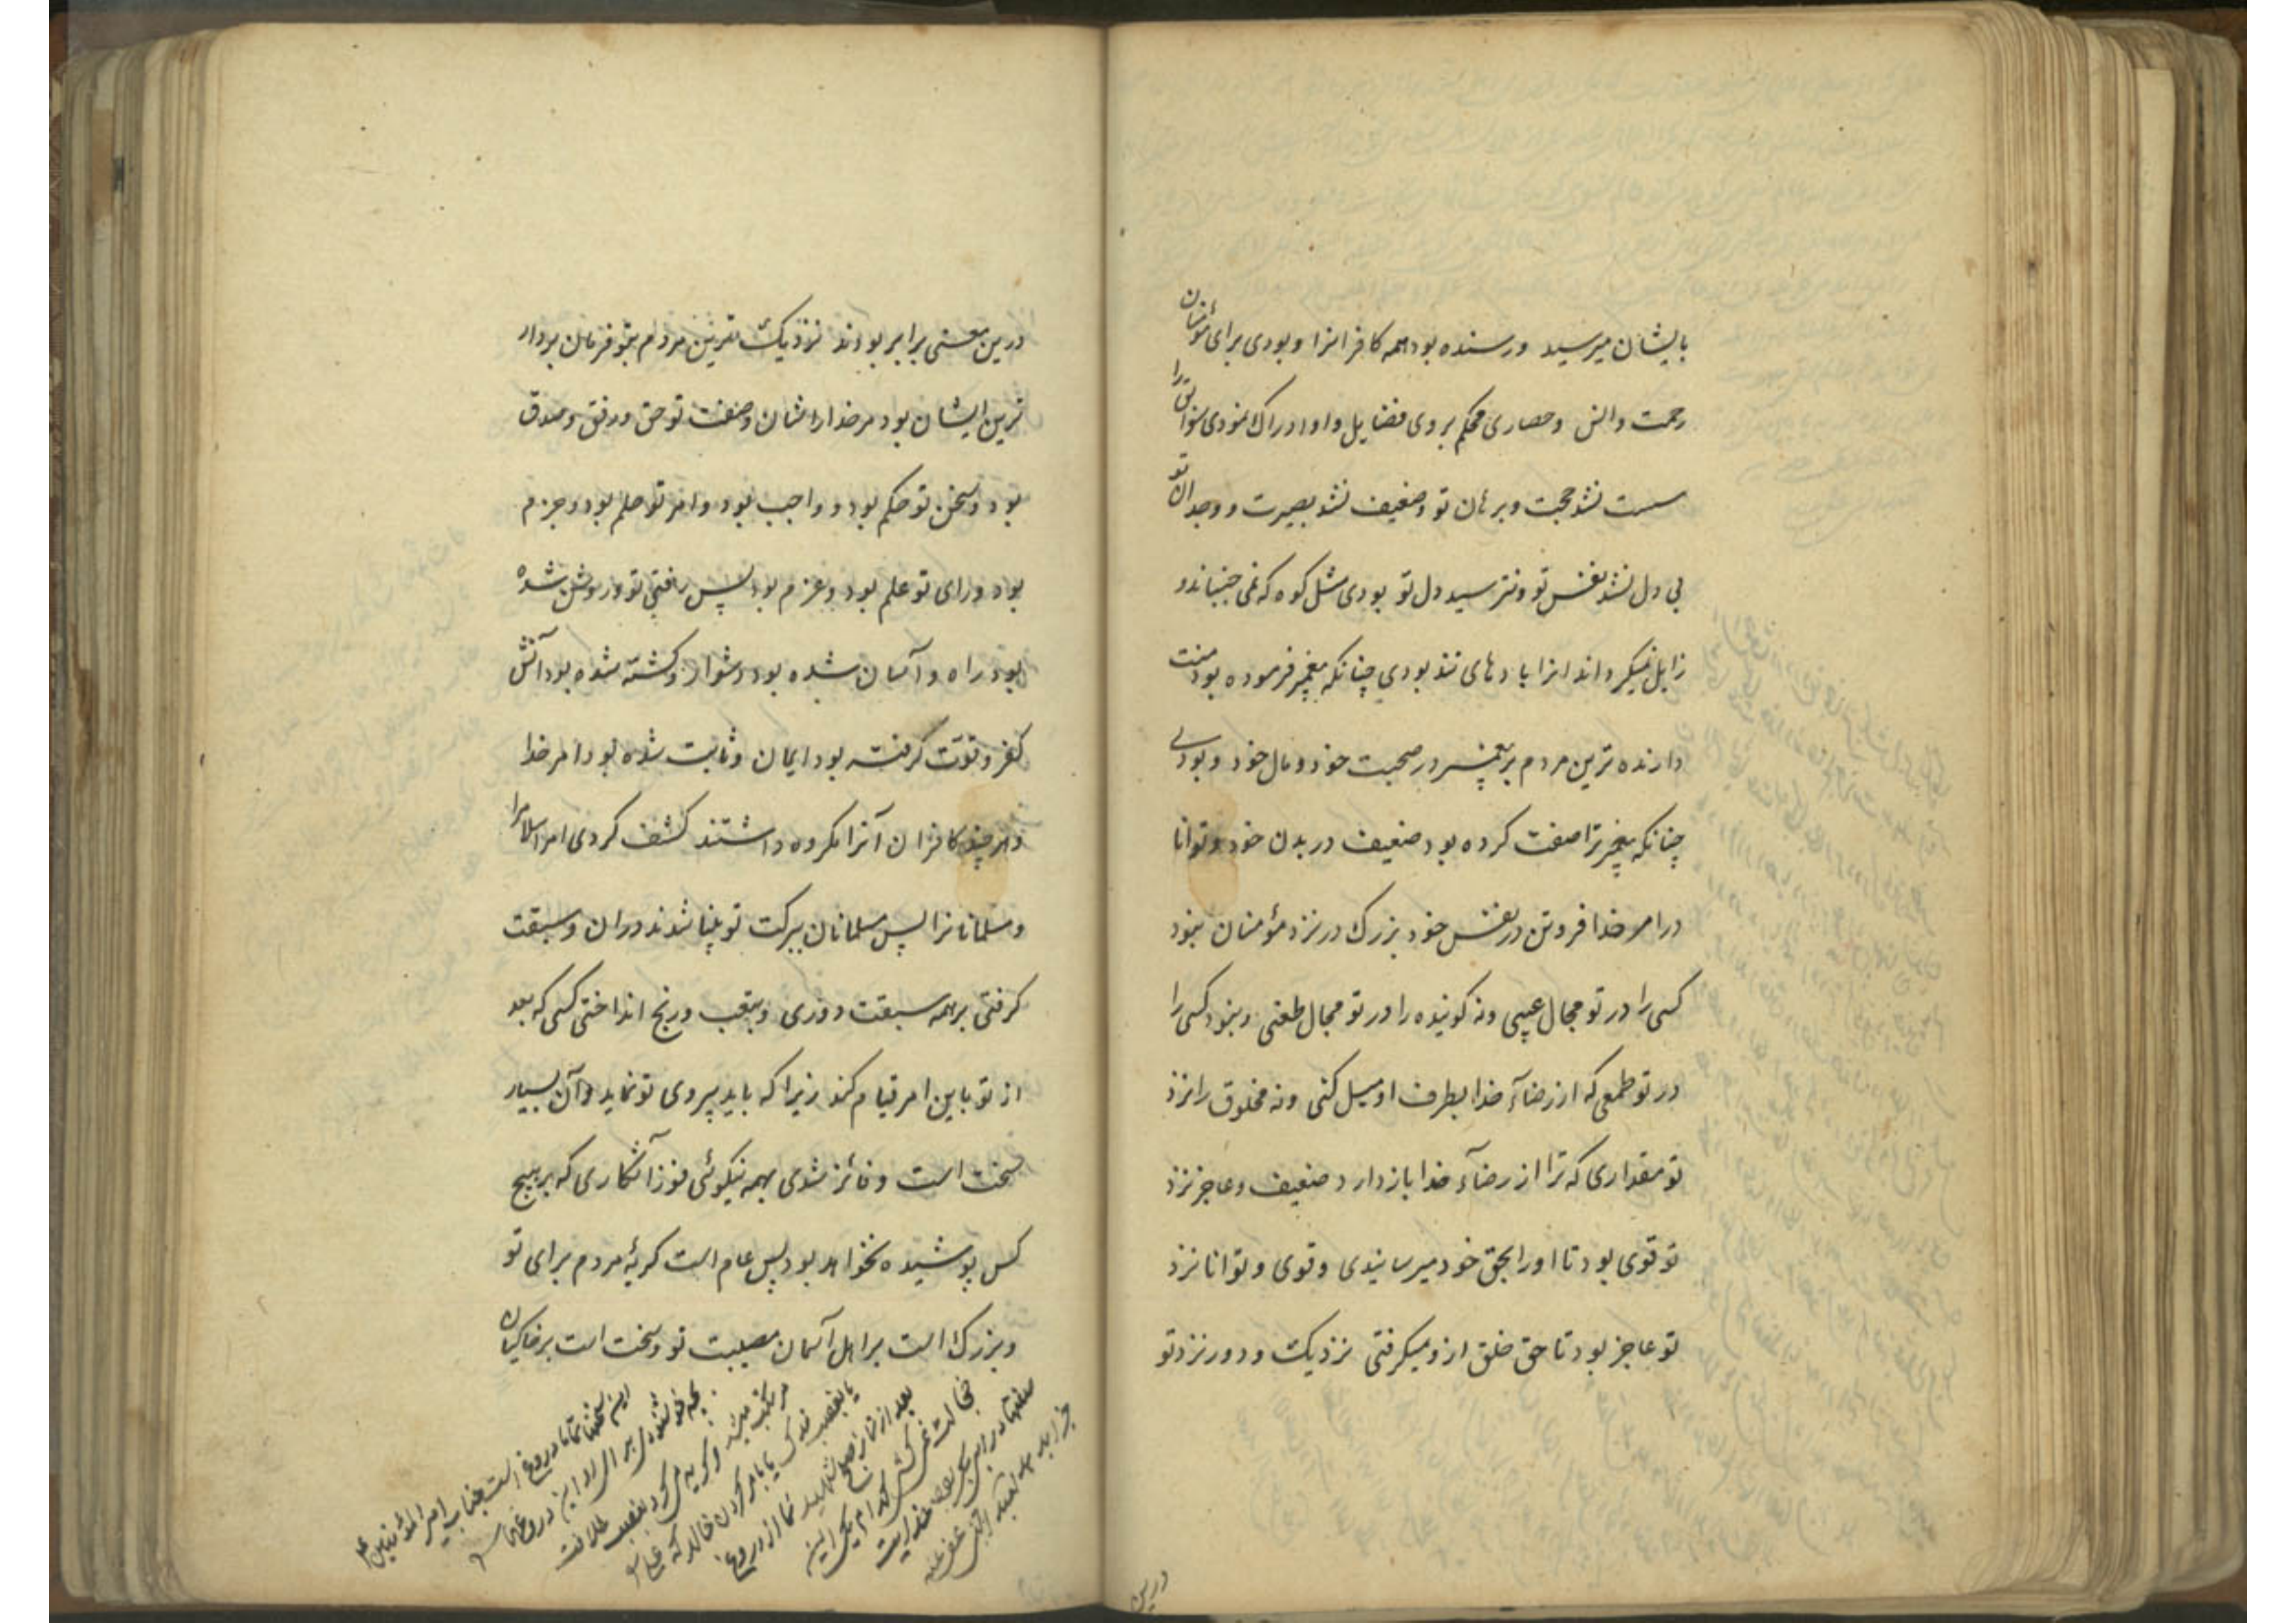 بایشان میرسید و رسنده بود همه کافرانرا و بودی برای مؤمنان
رحمت و انس و حصاری محکم بروی فضایل و او ادراک نمودی سوابق را
سست نشد حجت و برهان تو و ضعیف نشد بصیرت و وجدان تو
بی دل نشد نفس تو و نترسید دل تو بودی مثل کوه که نمی جنباند و
زایل نمیگرداند انرا بادهای تند بودی چنانکه پیغمبر فرموده بود منت
دارنده ترین مردم بر پیغمبر در صحبت خود و مال خود و بودی
چنانکه پیغمبر ترا صفت کرده بود ضعیف در بدن خود و توانا
در امر خدا فروتن در نفس خود بزرگ در نزد مؤمنان نبود
کسی را در تو مجال عیبی و نه گوینده را در تو مجال طعنی و نبود کسی را
در تو طمعی که از رضآء خدا بطرف او میل کنی و نه مخلوق را نزد
تو مقداری که ترا از رضآء خدا باز دارد ضعیف و عاجز نزد
تو قوی بود تا او را بحق خود میرسانیدی و قوی و توانا نزد
تو عاجز بود تا حق خلق ازو میگرفتی نزدیک و دور نزد تو
درین
درین معنی برابر بودند نزدیک ترین مردم بتو فرمان بردار
ترین ایشان بود مر خدا را شان و صفت تو حق و رفق و صدق
بود و سخن تو حکم بود و واجب بود و امر تو حلم بود و جزم
بود و رای تو علم بود و عزم بود پس رفتی تو و روشن شده
بود راه و آسان شده بود دشوار و کشته شده بود آتش
کفر و قوّت گرفته بود ایمان و ثابت شده بود امر خدا
و هر چند کافران آنرا مکروه داشتند کشف کردی امر اسلام را
و مسلمانانرا پس مسلمانان ببرکت تو بینا شدند دران و سبقت
گرفتی بر همه سبقت دوری و بتعب و رنج انداختی کسی که بعد
از تو باین امر قیام کند زیرا که باید پیروی تو نماید و آن بسیار
سخت است و فائز شدی بهمه نیکوئی فوز آشکاری که بر هیچ
کس پوشیده نخواهد بود پس عام است گریهٔ مردم برای تو
و بزرگ است بر اهل آسمان مصیبت تو و سخت است بر خاکیان
این سخنها تماما دروغ است جناب امیر المؤمنین
بچه خوشنودی بر ابی این دروغها
مرتکب میشد و گریه می کرد بغصب خلافت
یا بغصب فدک یا بامر کردن خالد که
بعد از نماز نماید نما از دروغ
خجالت نمی کشی کدام یکی این